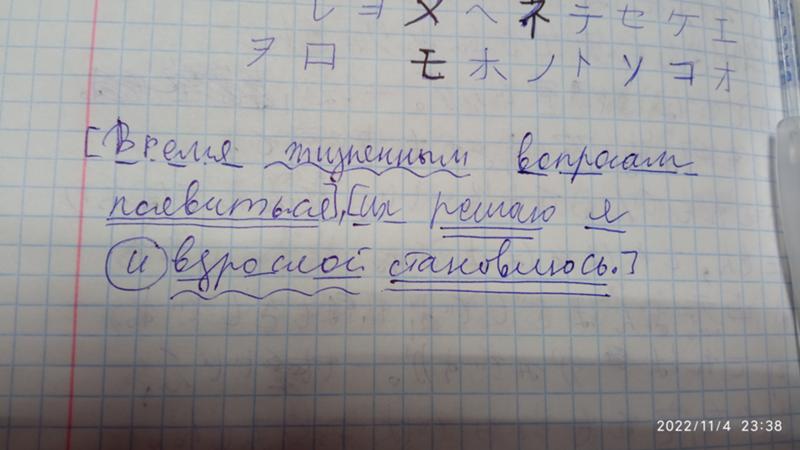 レ ヨ メ ヘ ネ テ セ ケ エ
ヲ ロ モ ホ ノ ト ソ コ オ
[Время жизненным вопросам
появиться], [их решаю я
и взрослой становлюсь.]
2022/11/4 23:38